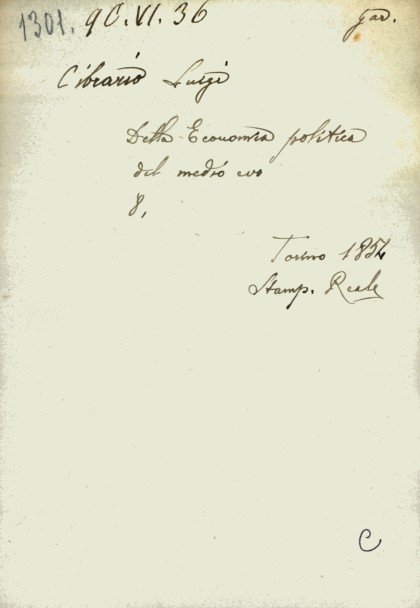 1301. 90.VI.36 gar.
Cibrario Luigi
Della Economia politica
del medio evo
8,
Torino 1854
Stamp. Reale
C